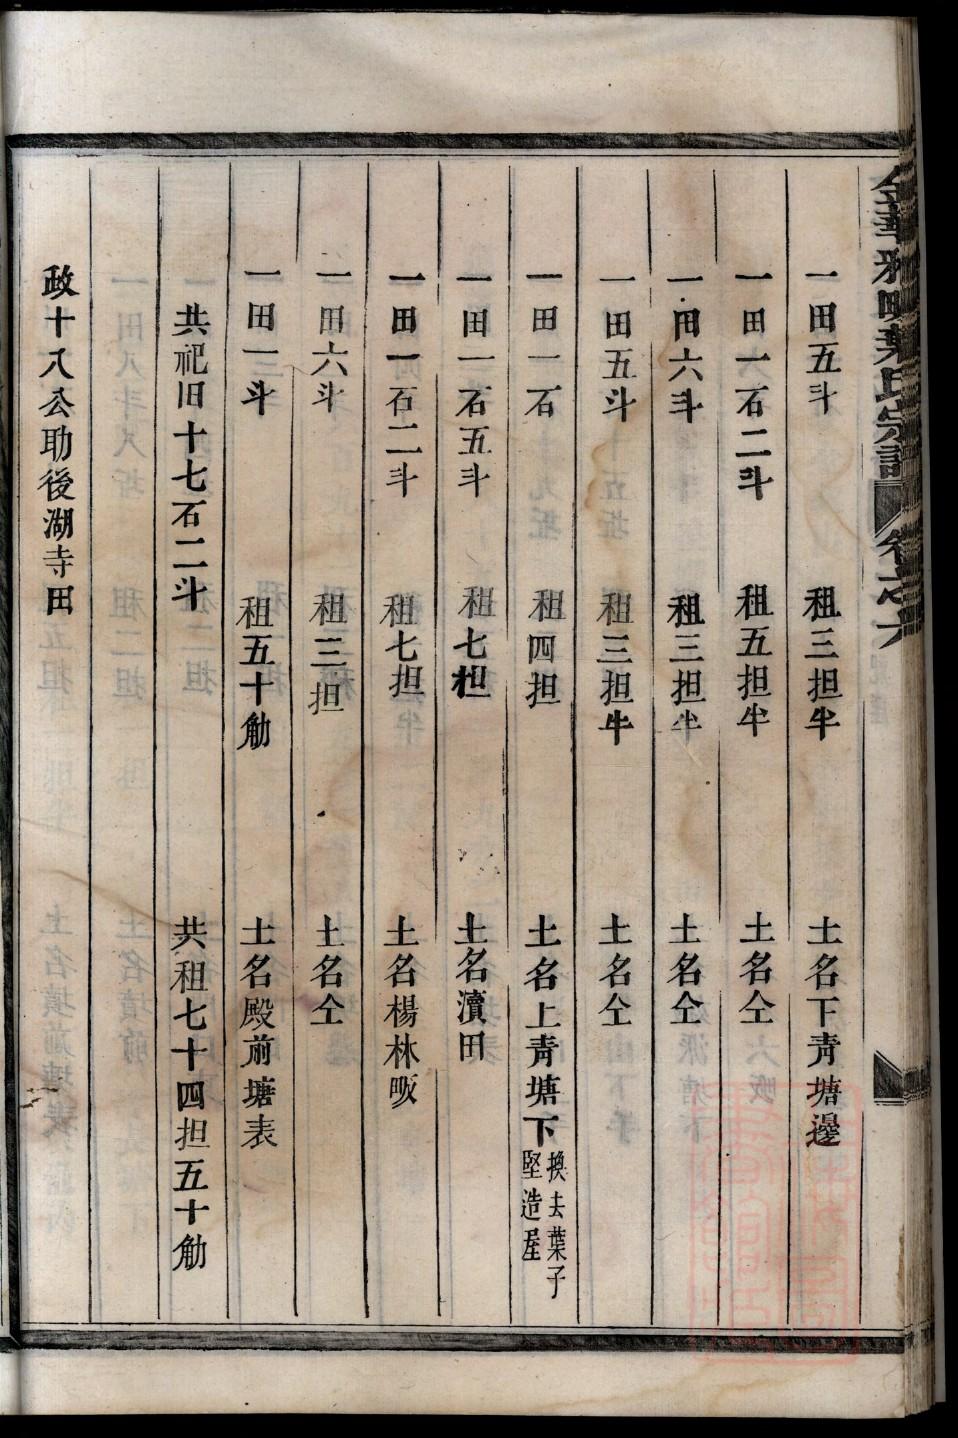 金華雅畈葉氏宗譜 卷之六
一田五斗 租三担半 土名下靑塘邊
一田一石二斗 租五担半 土名仝
一田六斗 租三担半 土名仝
一田五斗 租三担半 土名仝
一田一石 租四担 土名上靑塘下 換去葉子堅造屋
一田一石五斗 租七担 土名瀆田
一田一石二斗 租七担 土名楊林畈
一田六斗 租三担 土名仝
一田一斗 租五十觔 土名殿前塘表
共祀旧十七石二斗 共租七十四担五十觔
政十八公助後湖寺田